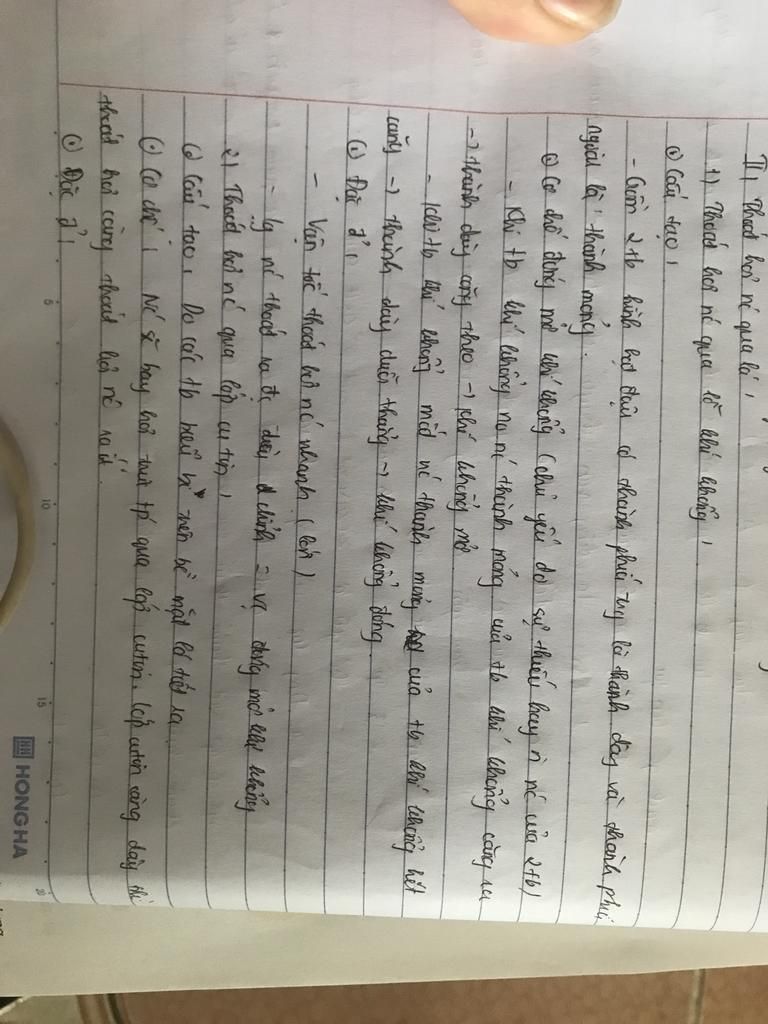 II, Thoát hơi nc qua lá,
1) Thoát hơi nc qua lỗ khí khổng,
Cấu tạo,
- Gồm 2tb hình hạt đậu có thành phía trg là thành dày và thành phía
ngoài là thành mỏng.
Cơ chế đóng mở khí khổng (chủ yếu do sự thiếu hay nc của 2tb)
- Khi tb khí khổng no nc thành mỏng của tb khí khổng căng ra
→ thành dày cong theo → khí khổng mở
- Khi tb khí khổng mất nc thành mỏng của tb khí khổng hết
căng → thành dày duỗi thẳng → khí khổng đóng.
Đặc đ',
- Vận tốc thoát hơi nc nhanh (lớn)
- lg nc thoát ra đc điều chỉnh = vc đóng mở khí khổng
2) Thoát hơi nc qua lớp cutin,
Cấu tạo, Do các tb biểu bì trên bề mặt lá tiết ra
Cơ chế, Nc sẽ bay hơi trực tp qua lớp cutin, lớp cutin càng dày thì
thoát hơi càng thoát hơi nc ra ít.
Đặc đ',
5 10 15 20
HONG HA